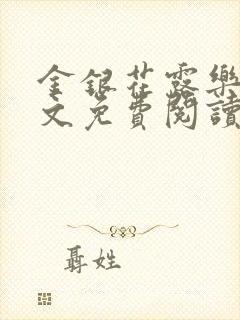 金銀花露樂
文免費閱讀
聶姓